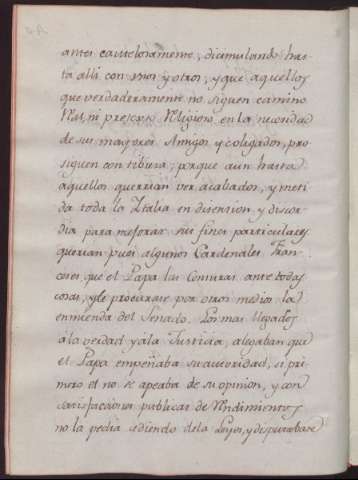 antes cautelosamente, dicimulando has-
ta allá con unos y otros, y que aquellos
que verdaderamente no siguen camino
Real, ni presisa Religion, en la necesidad
de sus mayores Amigos y coligados, pro-
siguen con tibieza; porque aun hasta
aquellos querrian ver acabados, y meti
da toda la Italia en dicension y discor
dia para mejorar sus fines particulares
querian pues algunos Cardenales Fran
ceses que el Papa las Censuras ante todas
cosas, y le procurase por otros medios la
enmienda del Senado. Los mas llegados
á la verdad y á la Justicia, alegaban que
el Papa empeñaba su autoridad, si pri
mero él no se apeaba de su opinion, y con
satisfacciones publicas de Rendimientos
no la pedia cediendo de las Leyes, y disputabase